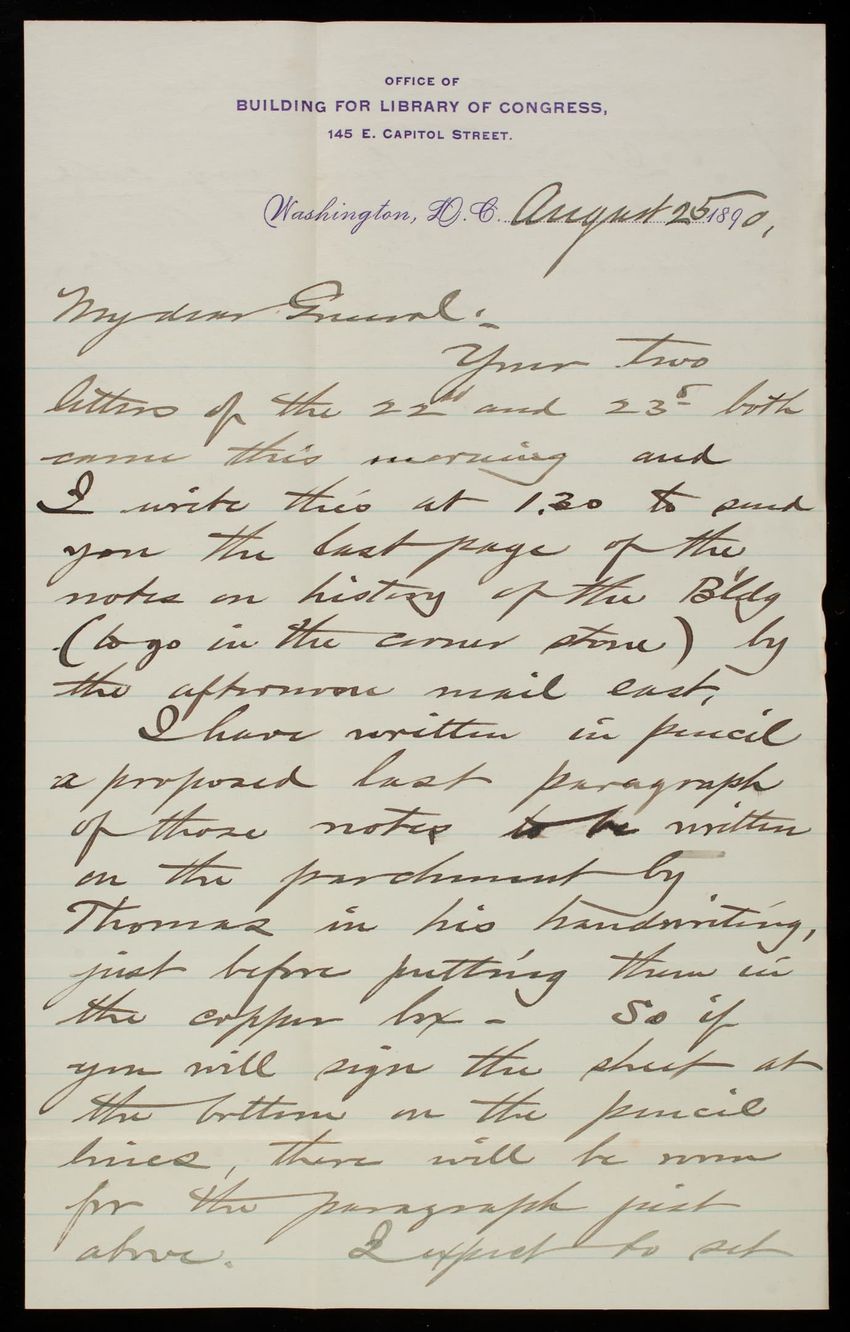 OFFICE OF
BUILDING FOR LIBRARY OF CONGRESS,
145 E. CAPITOL STREET.
Washington, D.C. August 25 1890,
My dear General:-
Your two
letters of the 22d and 23d both
came this morning and
I write this at 1.30 to send
you the last page of the
notes on history of the B'ldg
(to go in the corner stone) by
the afternoon mail east.
I have written in pencil
a proposed last paragraph
of those notes to be written
on the parchment by
Thomas in his handwriting,
just before putting them in
the copper box - So if
you will sign the sheet at
the bottom on the pencil
lines, there will be room
for the paragraph just
above. I expect to set